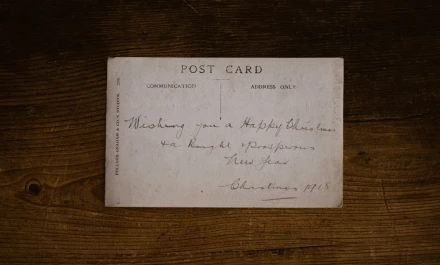 POST CARD
COMMUNICATION
ADDRESS ONLY
Wishing you a Happy Christmas
& a Bright & Prosperous
New Year
Christmas 1918